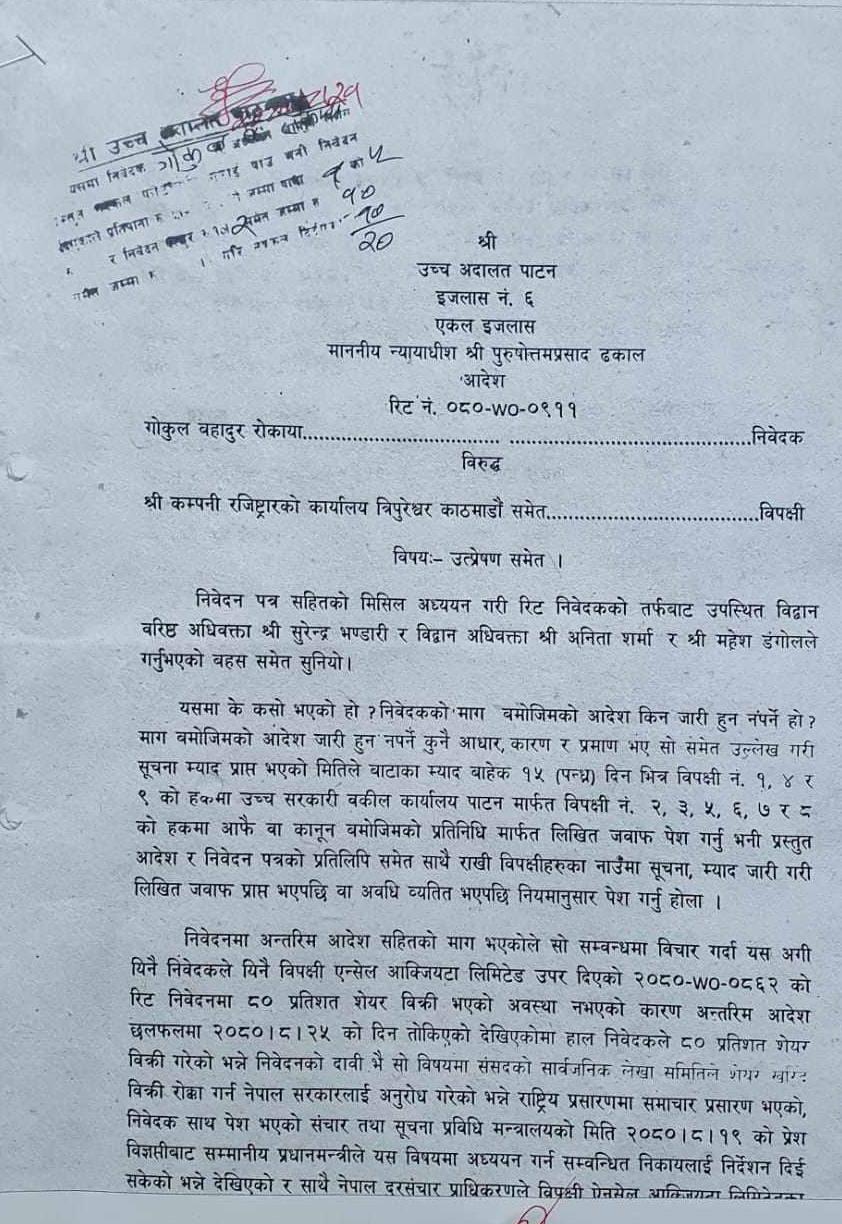 श्री उच्च
यसमा निवेदक गोकुल व
पाउ भनी निवेदन
जम्मा पाना १ को ५
र निवेदन दस्तुर समेत जम्मा रु १०
१०
जम्मा रु २०
श्री
उच्च अदालत पाटन
इजलास नं. ६
एकल इजलास
माननीय न्यायाधीश श्री पुरुषोत्तमप्रसाद ढकाल
आदेश
रिट नं. ०८०-WO-०९११
गोकुल वहादुर रोकाया.................................. ..........................................निवेदक
विरुद्ध
श्री कम्पनी रजिष्ट्रारको कार्यालय त्रिपुरेश्वर काठमाडौं समेत.....................................विपक्षी
विषयः- उत्प्रेषण समेत ।
निवेदन पत्र सहितको मिसिल अध्ययन गरी रिट निवेदकको तर्फबाट उपस्थित विद्वान
वरिष्ठ अधिवक्ता श्री सुरेन्द्र भण्डारी र विद्वान अधिवक्ता श्री अनिता शर्मा र श्री महेश डंगोलले
गर्नुभएको वहस समेत सुनियो।
यसमा के कसो भएको हो ? निवेदकको माग वमोजिमको आदेश किन जारी हुन नपर्ने हो ?
माग वमोजिमको आदेश जारी हुन नपर्ने कुनै आधार, कारण र प्रमाण भए सो समेत उल्लेख गरी
सूचना म्याद प्राप्त भएको मितिले वाटाका म्याद बाहेक १५ (पन्ध्र) दिन भित्र विपक्षी नं. १, ४ र
९ को हकमा उच्च सरकारी वकील कार्यालय पाटन मार्फत विपक्षी नं. २, ३, ५, ६, ७ र ८
को हकमा आफै वा कानून वमोजिमको प्रतिनिधि मार्फत लिखित जवाफ पेश गर्नु भनी प्रस्तुत
आदेश र निवेदन पत्रको प्रतिलिपि समेत साथै राखी विपक्षीहरुका नाउँमा सूचना, म्याद जारी गरी
लिखित जवाफ प्राप्त भएपछि वा अवधि व्यतित भएपछि नियमानुसार पेश गर्नु होला ।
निवेदनमा अन्तरिम आदेश सहितको माग भएकोले सो सम्वन्धमा विचार गर्दा यस अगी
यिनै निवेदकले यिनै विपक्षी एन्सेल आक्जियटा लिमिटेड उपर दिएको २०८०-WO-०८६२ को
रिट निवेदनमा ८० प्रतिशत शेयर विक्री भएको अवस्था नभएको कारण अन्तरिम आदेश
छलफलमा २०८०।८।२५ को दिन तोकिएको देखिएकोमा हाल निवेदकले ८० प्रतिशत शेयर
विक्री गरेको भन्ने निवेदनको दावी भै सो विषयमा संसदको सार्वजनिक लेखा समितिले शेयर खरिद
विक्री रोक्का गर्न नेपाल सरकारलाई अनुरोध गरेको भन्ने राष्ट्रिय प्रसारणमा समाचार प्रसारण भएको,
निवेदक साथ पेश भएको संचार तथा सूचना प्रविधि मन्त्रालयको मिति २०८०।८।१९ को प्रेश
विज्ञप्तीबाट सम्मानीय प्रधानमन्त्रीले यस विषयमा अध्ययन गर्न सम्वन्धित निकायलाई निर्देशन दिई
सकेको भन्ने देखिएको र साथै नेपाल दूरसंचार प्राधिकरणले विपक्षी ऐनसेल आक्जियटा लिमिटेडका